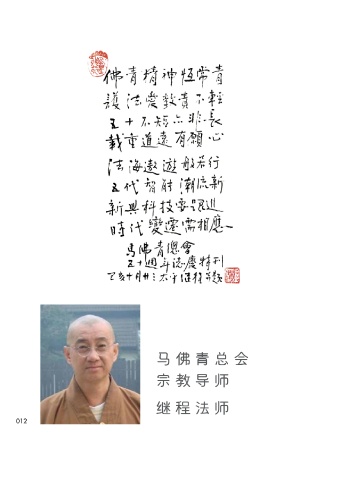 佛青精神恆常青
護法農教責不輕
五十不短亦非長
載重道遠有願心
法海遨遊般若行
五代智能潮流新
新興科技要跟進
時代變遷需相應
馬佛青總會
五十週年誌慶特刊
马佛青总会
宗教导师
继程法师
012